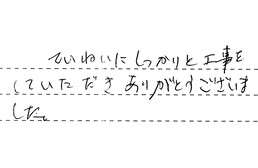 ていねいにしっかりと工事を
していただきありがとうございま
した。